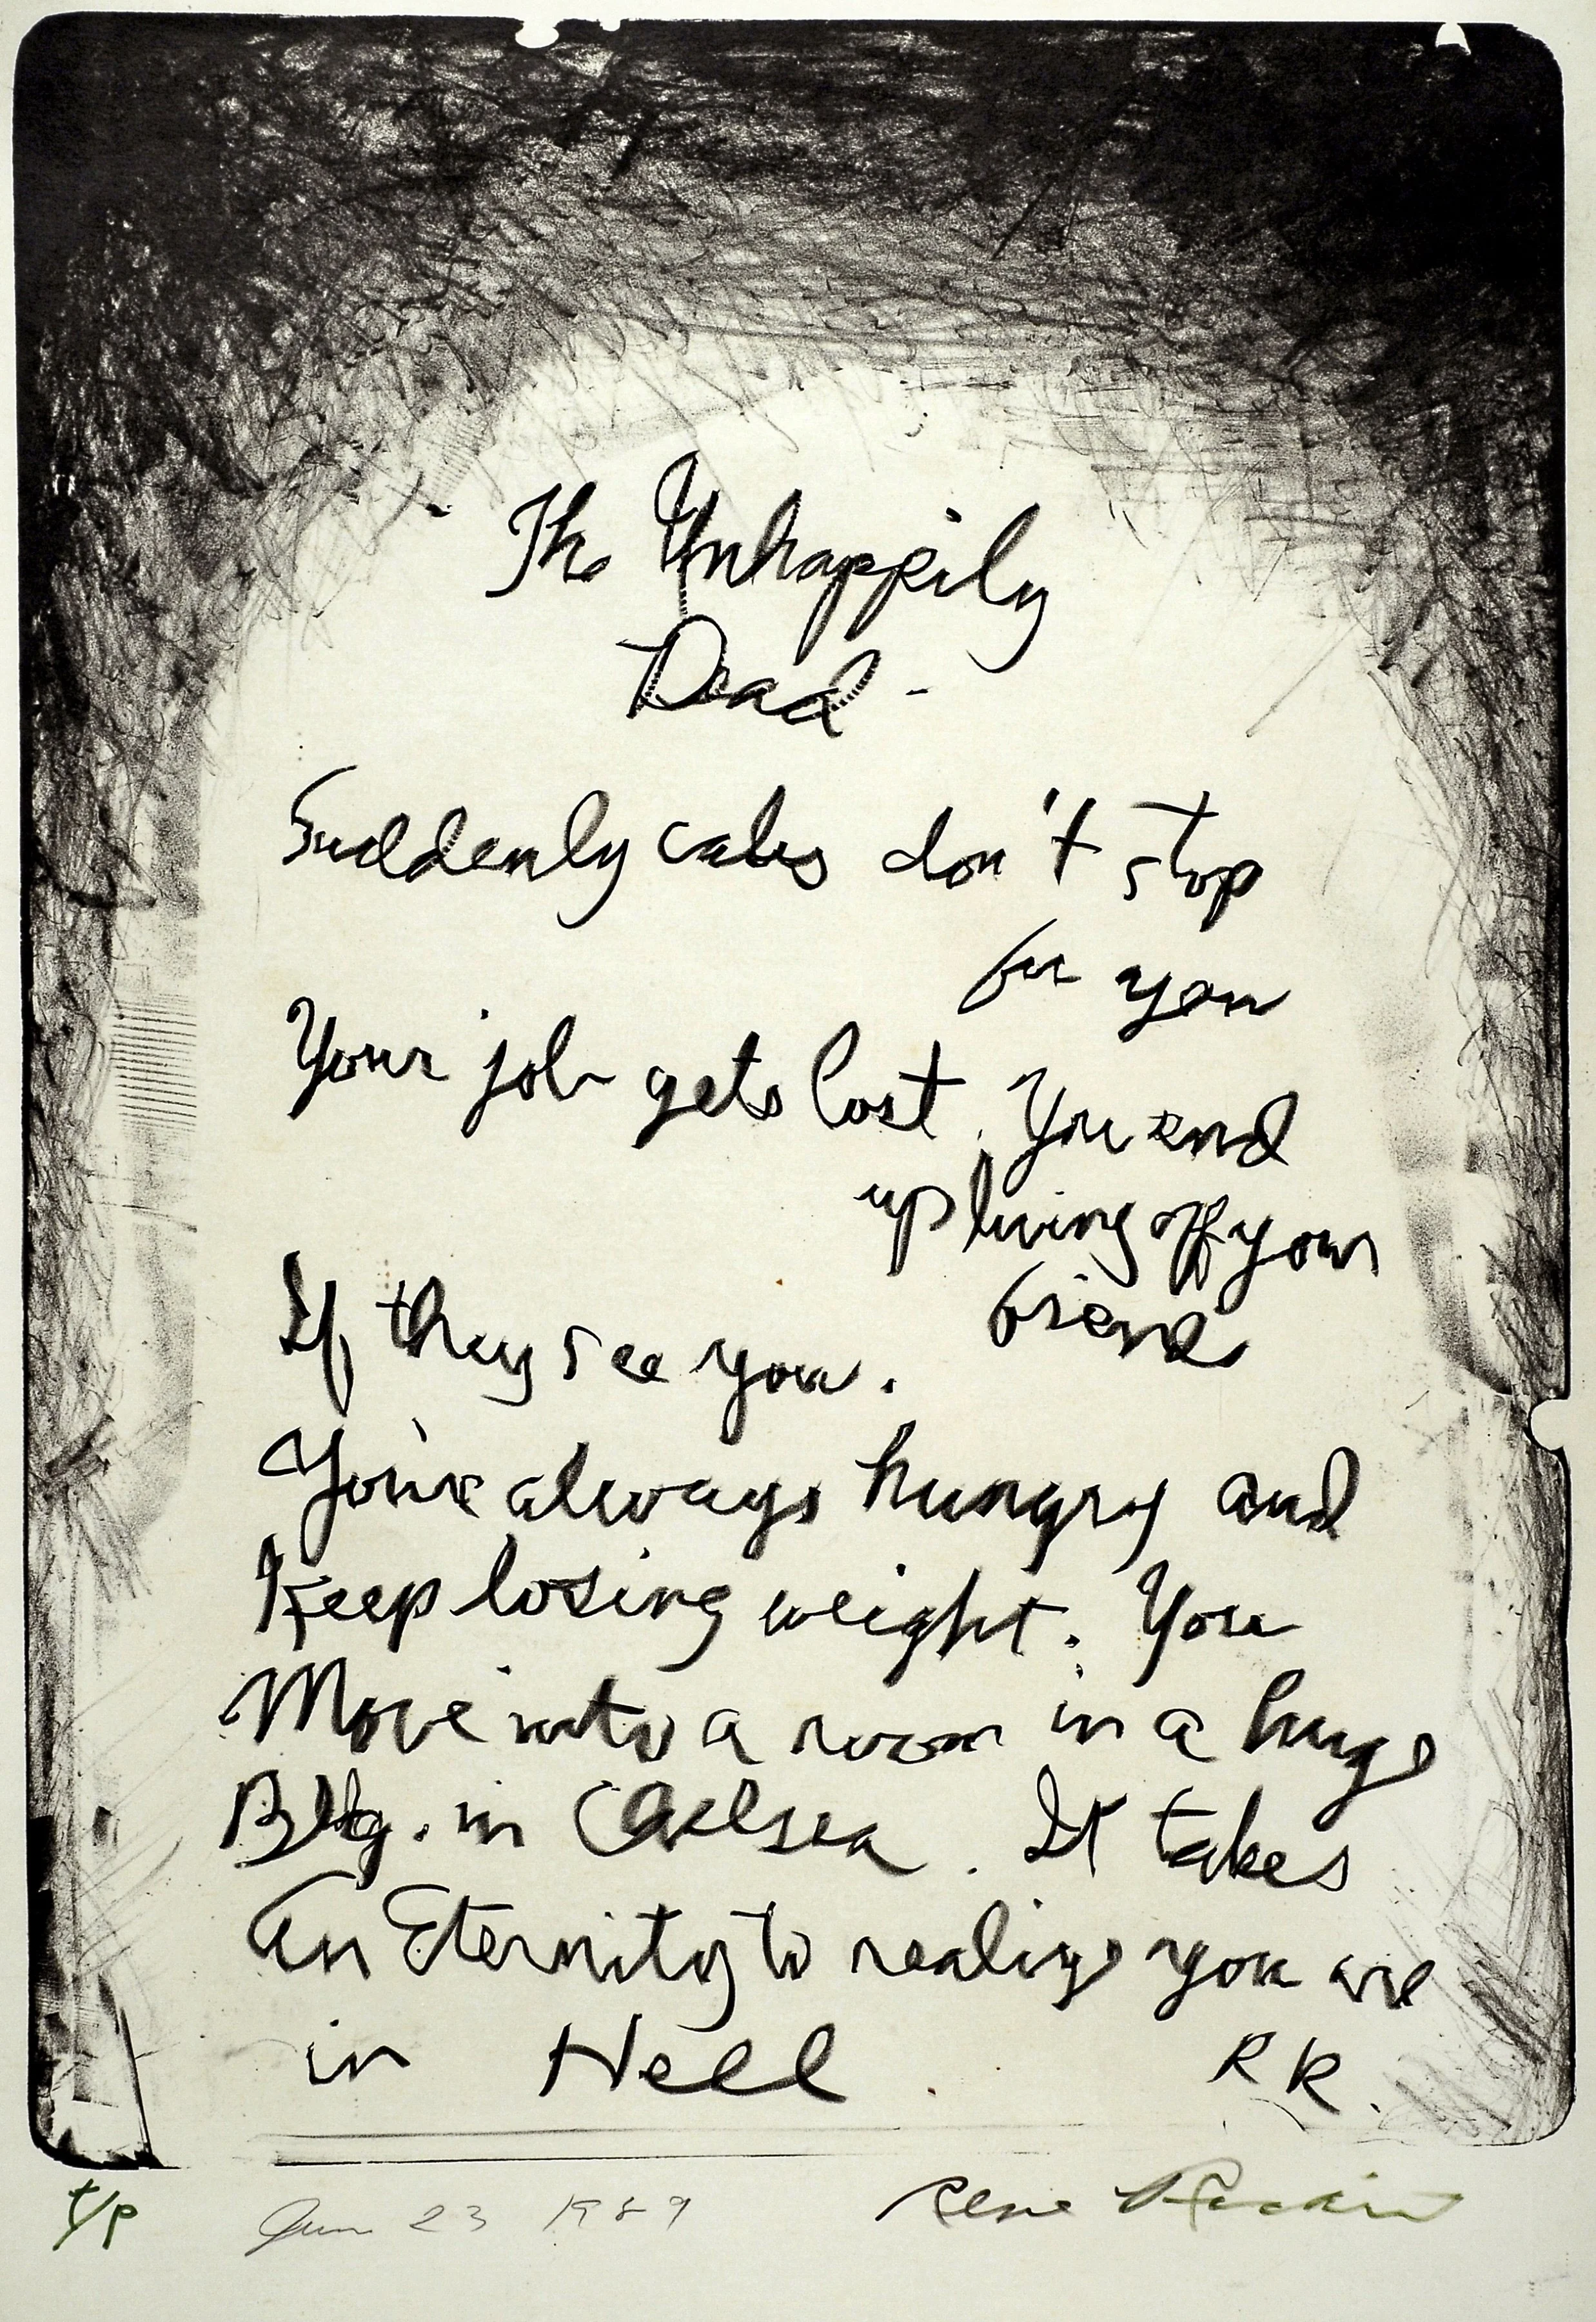 The Unhappily
Dead -
Suddenly cabs don't stop
for you
Your job gets lost. You end
up living off your
friends
If they see you.
You're always hungry and
Keep losing weight. You
Move into a room in a huge
Bldg. in Chelsea. It takes
An Eternity to realize you are
in Hell
RR.
t/p
June 23 1989
Rene